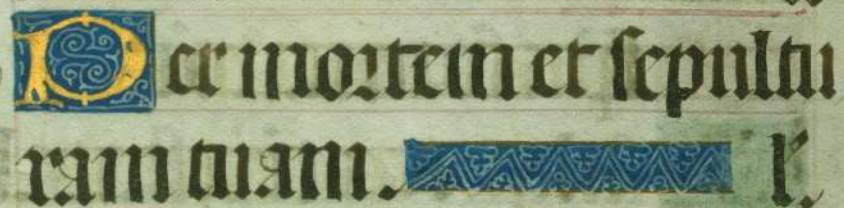 Per mortem et sepultu
ram tuam. l.